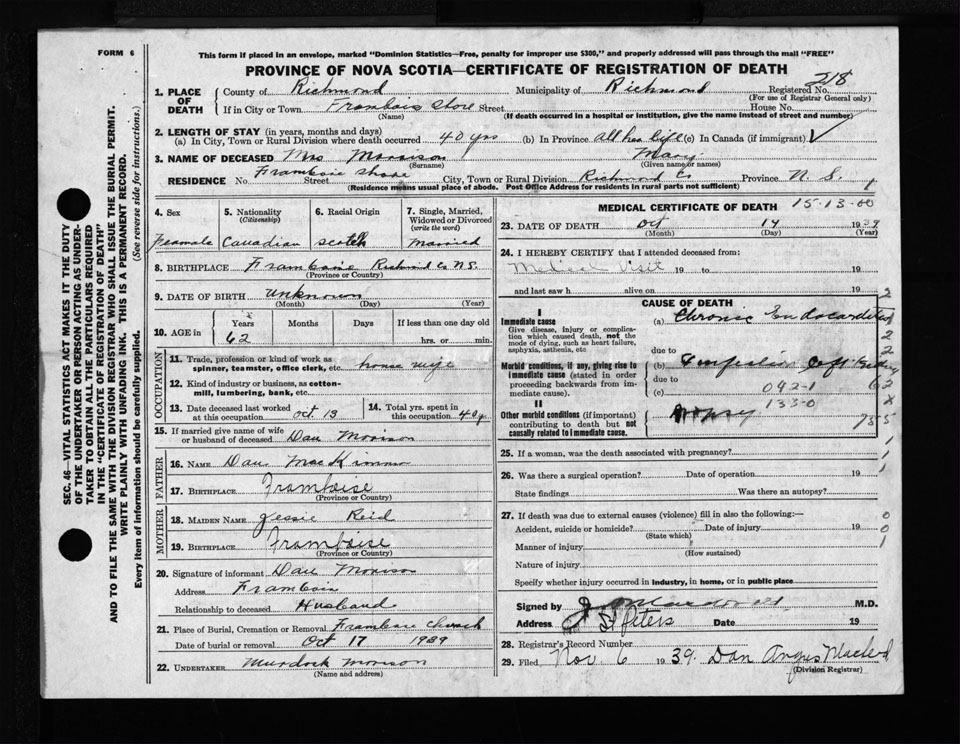 FORM 6
This form if placed in an envelope, marked "Dominion Statistics—Free, penalty for improper use $300," and properly addressed will pass through the mail "FREE"
PROVINCE OF NOVA SCOTIA—CERTIFICATE OF REGISTRATION OF DEATH
218
1. PLACE OF DEATH County of Richmond Municipality of Richmond Registered No.
(For use of Registrar General only)
If in City or Town Frambois Shore Street House No.
(Name) (If death occurred in a hospital or institution, give the name instead of street and number)
2. LENGTH OF STAY (in years, months and days)
(a) In City, Town or Rural Division where death occurred 40 yrs (b) In Province all her life (c) In Canada (if immigrant)
3. NAME OF DECEASED Mrs Morrison Mary
(Surname) (Given name or names)
RESIDENCE No. Framboise Shore Street City, Town or Rural Division Richmond Co Province N.S.
(Residence means usual place of abode. Post Office Address for residents in rural parts not sufficient)
4. Sex 5. Nationality (Citizenship) 6. Racial Origin 7. Single, Married, Widowed or Divorced (write the word)
Feamale Canadian Scotch Married
8. BIRTHPLACE Framboise Richmd Co N.S.
(Province or Country)
9. DATE OF BIRTH unknown
(Month) (Day) (Year)
10. AGE in Years Months Days If less than one day old
62 hrs. or min.
OCCUPATION
11. Trade, profession or kind of work as spinner, teamster, office clerk, etc. house wife
12. Kind of industry or business, as cotton-mill, lumbering, bank, etc.
13. Date deceased last worked at this occupation oct 13 14. Total yrs. spent in this occupation 40 y
15. If married give name of wife or husband of deceased Dan Morison
FATHER
16. NAME Dan MacKinnon
17. BIRTHPLACE Framboise
(Province or Country)
MOTHER
18. MAIDEN NAME Jessie Reid
19. BIRTHPLACE Framboise
(Province or Country)
20. Signature of informant Dan Morison
Address Frambois
Relationship to deceased Husband
21. Place of Burial, Cremation or Removal Framboise Church
Date of burial or removal Oct 17 1939
22. UNDERTAKER Murdock Morison
(Name and address)
MEDICAL CERTIFICATE OF DEATH 15-13-00
23. DATE OF DEATH Oct 14 1939
(Month) (Day) (Year)
24. I HEREBY CERTIFY that I attended deceased from:
Medical Visit 19 to 19
and last saw h alive on 19
CAUSE OF DEATH
I
Immediate cause (a) Chronic Endocarditis
Give disease, injury or complication which caused death, not the mode of dying, such as heart failure, asphyxia, asthenia, etc
due to
Morbid conditions, if any, giving rise to immediate cause (stated in order proceeding backwards from immediate cause). (b)
due to
(c) 092-1
II
133-0
Other morbid conditions (if important) contributing to death but not causally related to immediate cause. Dropsy
25. If a woman, was the death associated with pregnancy?
26. Was there a surgical operation? Date of operation 19
State findings Was there an autopsy?
27. If death was due to external causes (violence) fill in also the following:—
Accident, suicide or homicide? Date of injury 19
(State which)
Manner of injury
(How sustained)
Nature of injury
Specify whether injury occurred in industry, in home, or in public place
Signed by M.D.
Address St Peters Date 19
28. Registrar's Record Number
29. Filed Nov 6 1939. Dan Angus Macleod
(Division Registrar)
SEC. 46—VITAL STATISTICS ACT MAKES IT THE DUTY
OF THE UNDERTAKER OR PERSON ACTING AS UNDER-
TAKER TO OBTAIN ALL THE PARTICULARS REQUIRED
IN THE "CERTIFICATE OF REGISTRATION OF DEATH"
AND TO FILE THE SAME WITH THE DIVISION REGISTRAR WHO SHALL ISSUE THE BURIAL PERMIT.
WRITE PLAINLY WITH UNFADING INK. THIS IS A PERMANENT RECORD.
Every item of information should be carefully supplied. (See reverse side for instructions.)